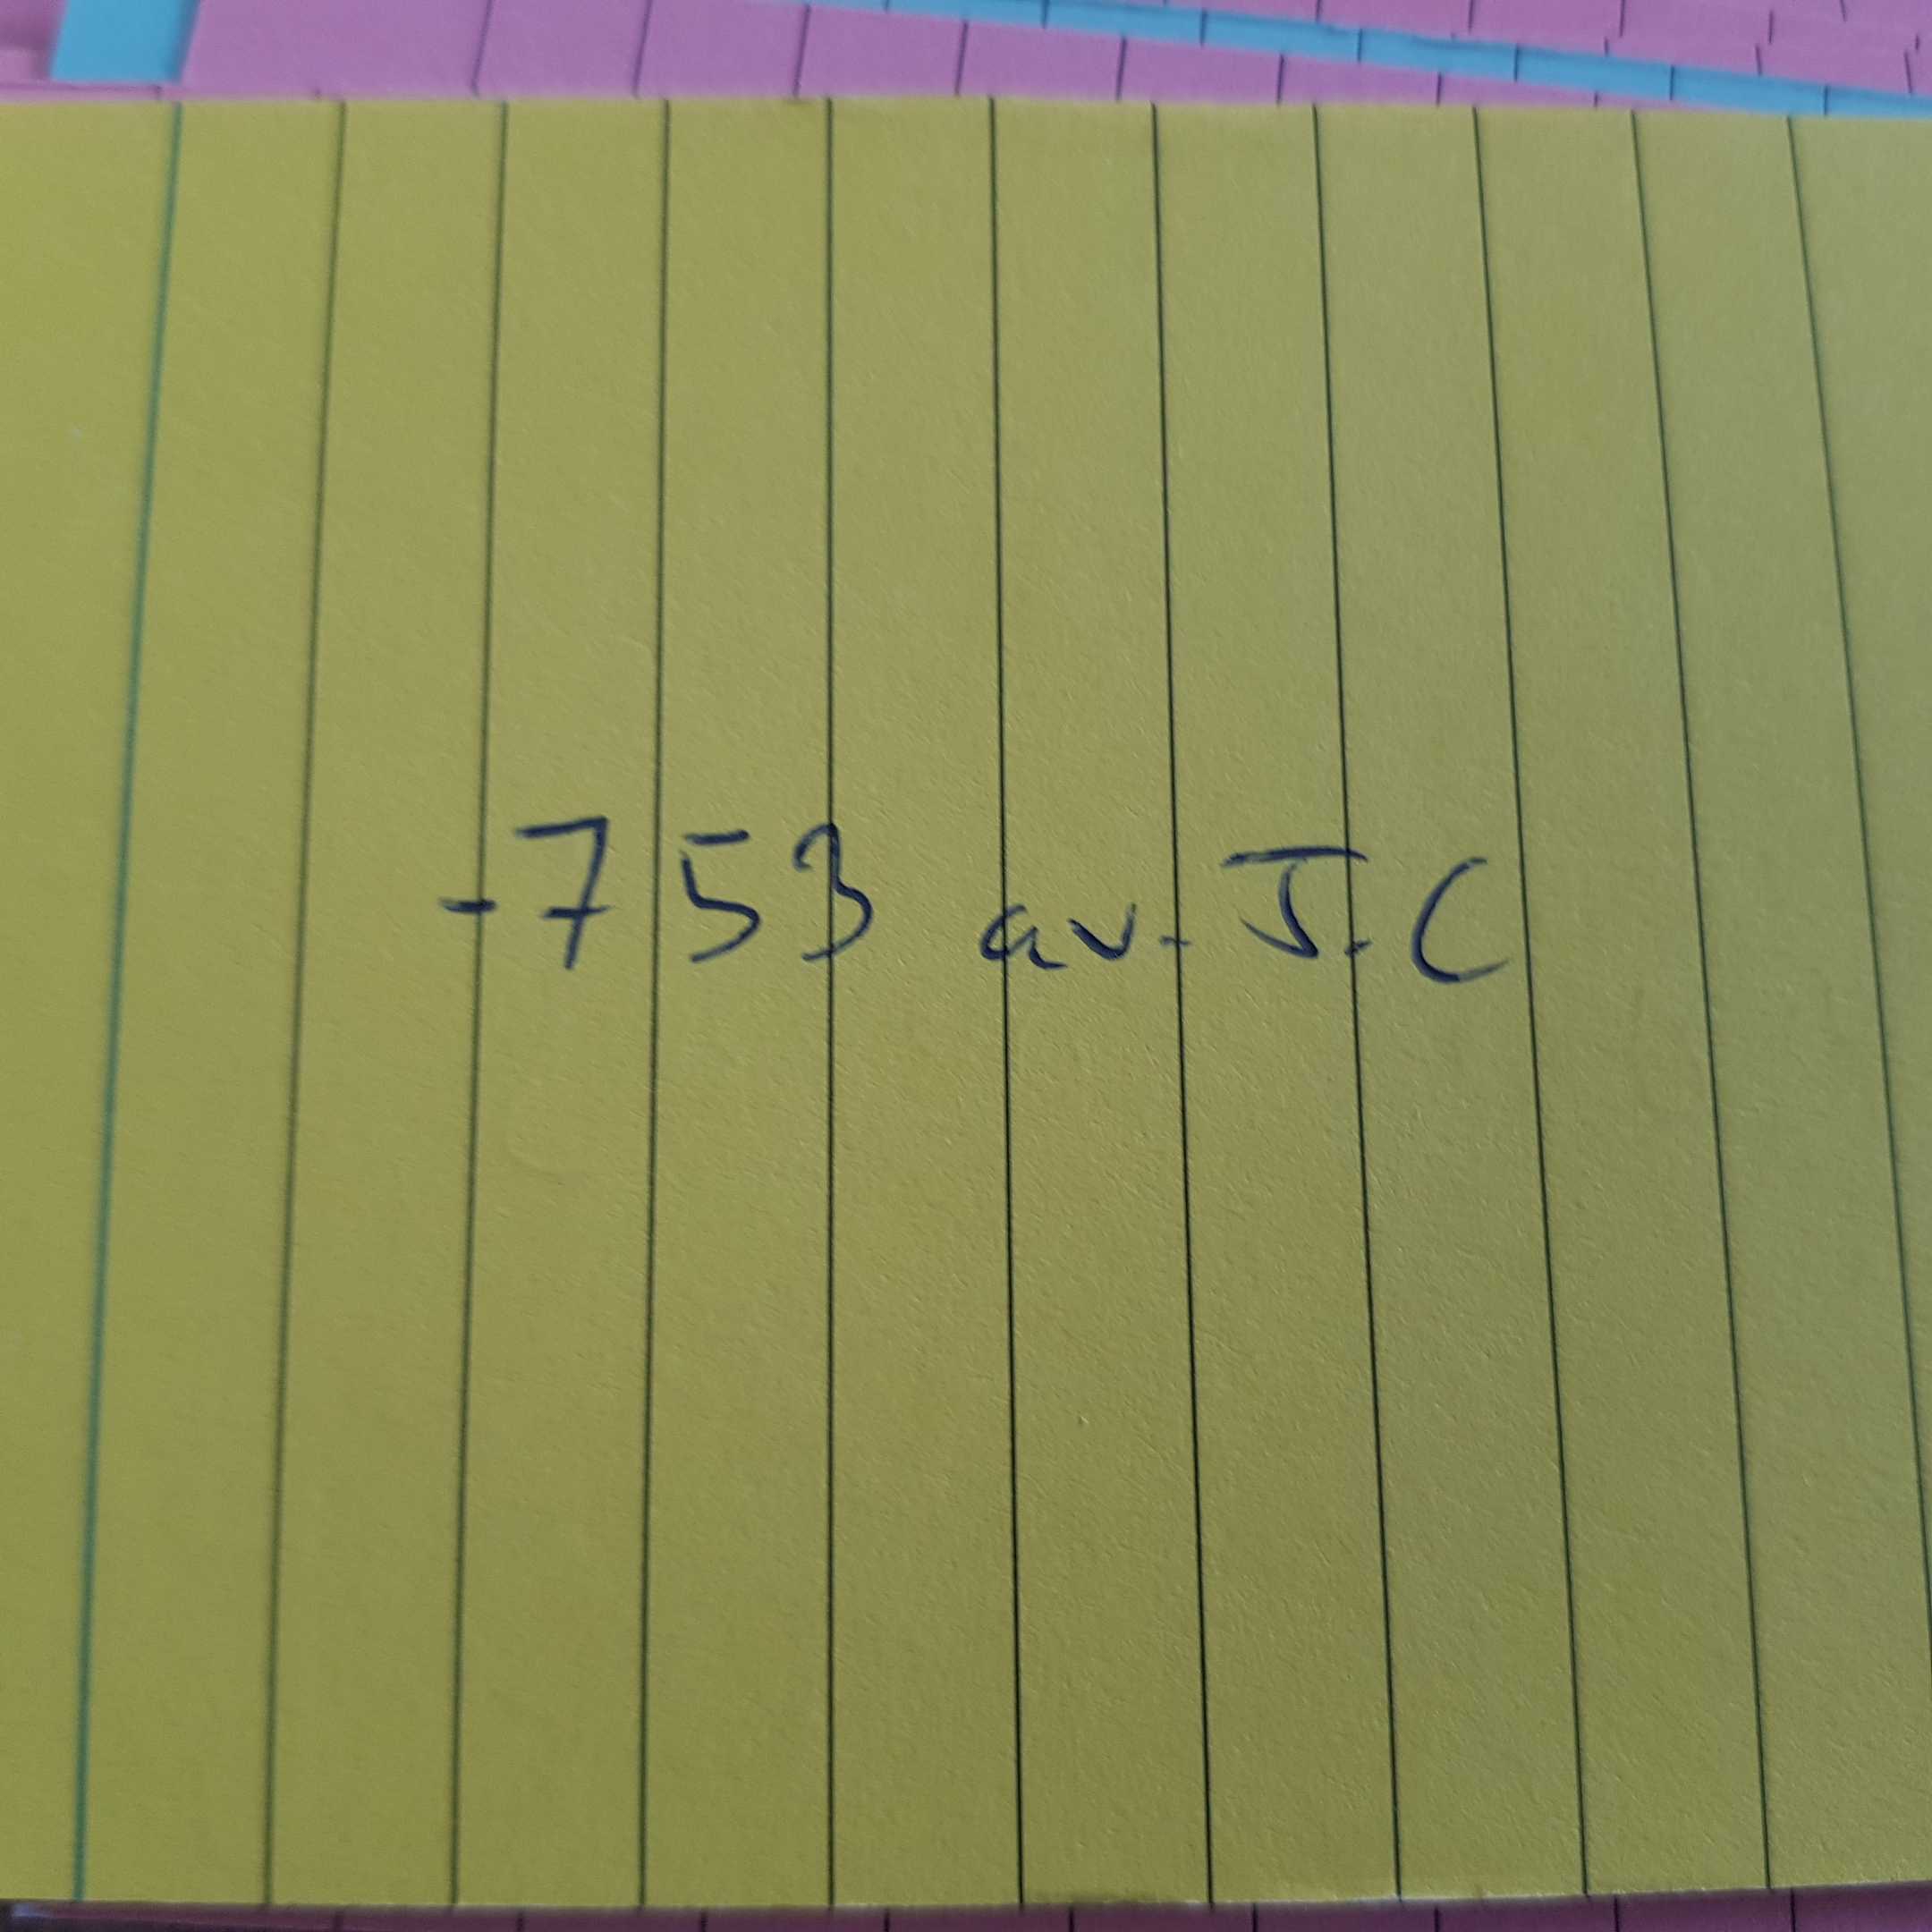 -753 av. J.C